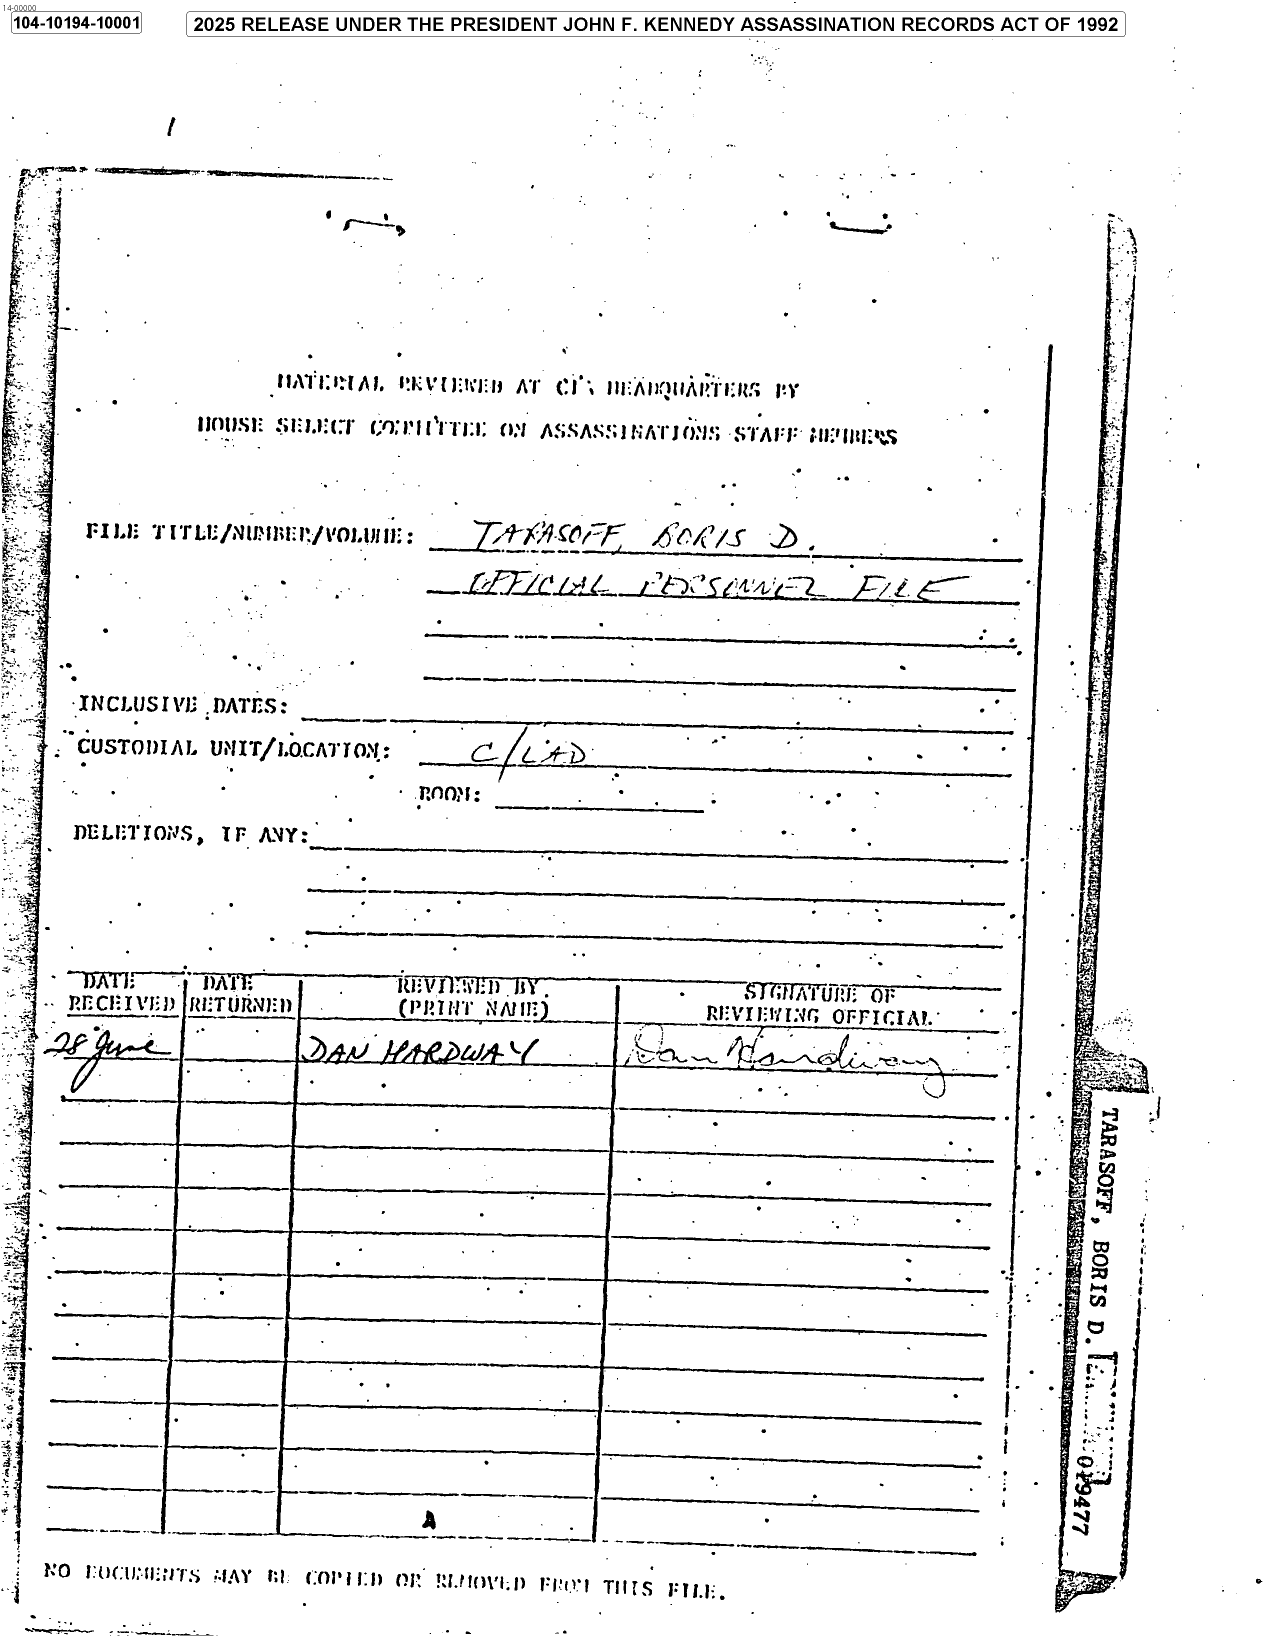 14-00000
104-10194-10001
2025 RELEASE UNDER THE PRESIDENT JOHN F. KENNEDY ASSASSINATION RECORDS ACT OF 1992
1
MATERIAL REVIEWED AT CIA HEADQUARTERS BY
HOUSE SELECT COMMITTEE ON ASSASSINATIONS STAFF MEMBERS
FILE TITLE/NUMBER/VOLUME: TARASOFF, BORIS D.
OFFICIAL PERSONNEL FILE
INCLUSIVE DATES:
CUSTODIAL UNIT/LOCATION: C/LAD
ROOM:
DELETIONS, IF ANY:
DATE RECEIVED DATE RETURNED REVIEWED BY (PRINT NAME) SIGNATURE OF REVIEWING OFFICIAL
28 June DAN HARDWAY Dan Hardway
TARASOFF, BORIS D.
019477
NO DOCUMENTS MAY BE COPIED OR REMOVED FROM THIS FILE.